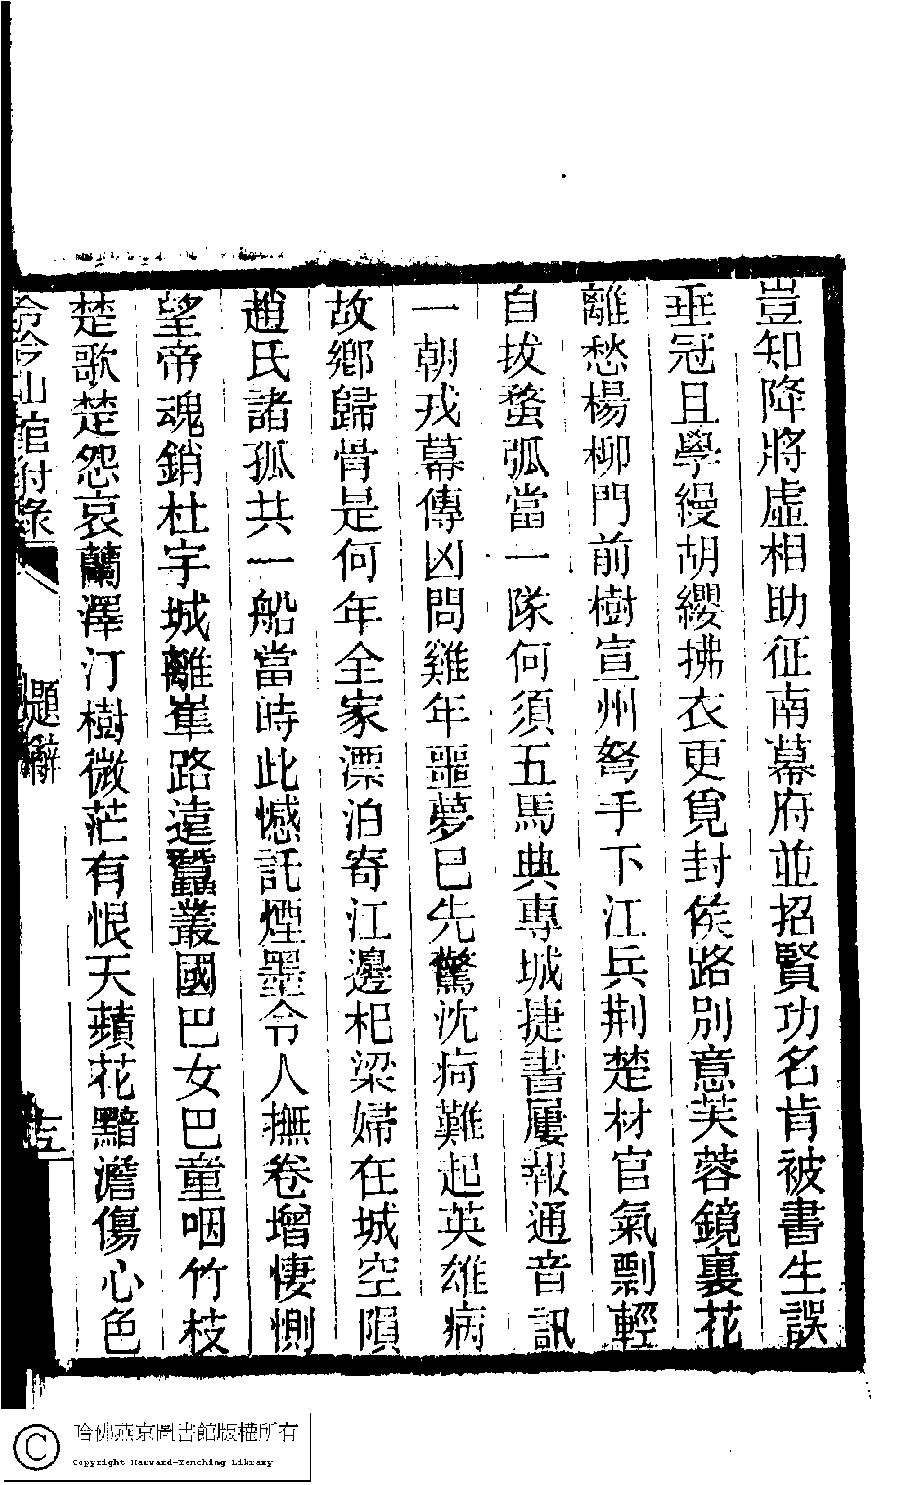 豈知降將虛相助征南幕府並招賢功名肯被書生誤
垂冠且學縵胡纓拂衣更覓封侯路別意芙蓉鏡裏花
離愁楊柳門前樹宣州弩手下江兵荆楚材官氣剽輕
自拔蝥弧當一隊何須五馬典專城捷書屢報通音訊
一朝戎幕傳凶問雞年噩夢已先驚沈疴難起英雄病
故鄉歸骨是何年全家漂泊寄江邊杞梁婦在城空隕
趙氏諸孤共一船當時此憾託煙墨令人撫卷增悽惻
望帝魂銷杜宇城離崔路遠蠶叢國巴女巴童咽竹枝
楚歌楚怨哀蘭澤汀樹微茫有恨天蘋花黯澹傷心色
山館附錄
題辭
哈佛燕京圖書館版權所有
Copyright Harvard-Yenching Library